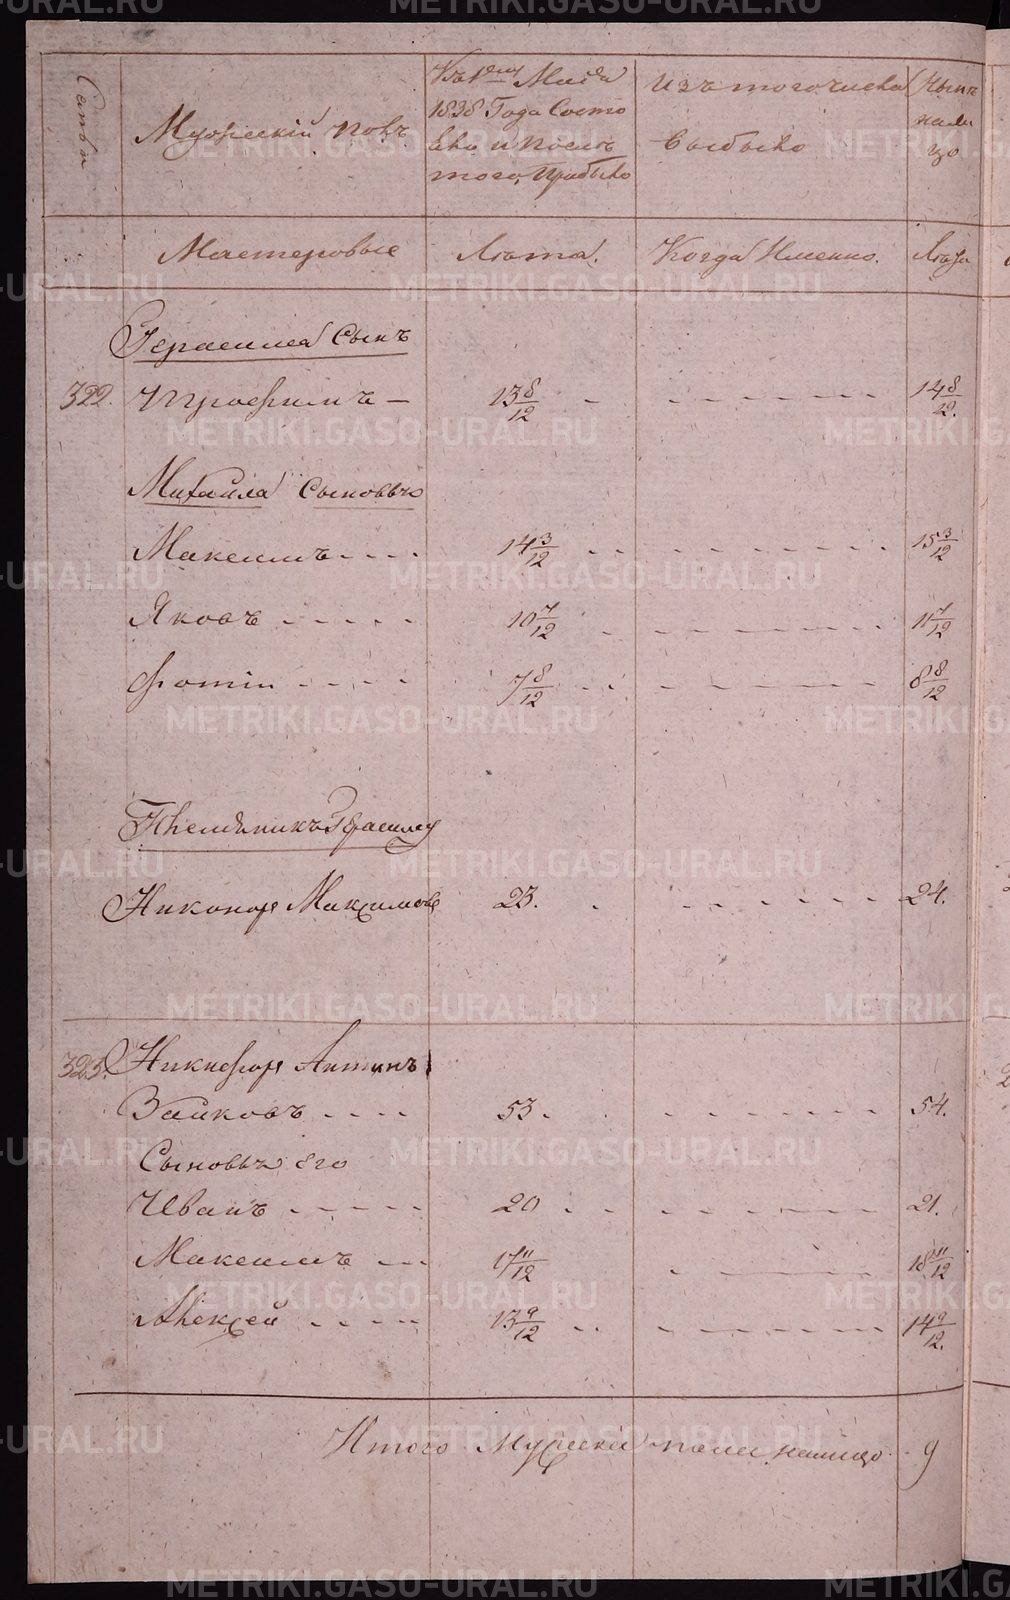 Семьи
Мужескій полъ
Къ 1му Маія
1838 Года Состо
яло и послѣ
того, прибыло
Изъ того числа
выбыло
Нынѣ
нали
цо
Мастеровые
Лѣта.
Когда Именно.
Лѣта
Герасима Сынъ
322. Трофимъ – 13 8/12 14 8/12.
Михаила Сыновья
Максимъ 14 3/12 15 3/12
Яковъ 10 7/12 11 7/12
Фотій 7 8/12 8 8/12
Племянникъ Герасиму
Никоноръ Максимовъ 23. 24.
323. Никифоръ Антипъ
Зайковъ 53. 54.
Сыновья его
Иванъ 20 21.
Максимъ 17 11/12 18 11/12
Алексей 13 9/12 14 9/12.
Итого Мужеска пола налицо 9
METRIKI.GASO-URAL.RU